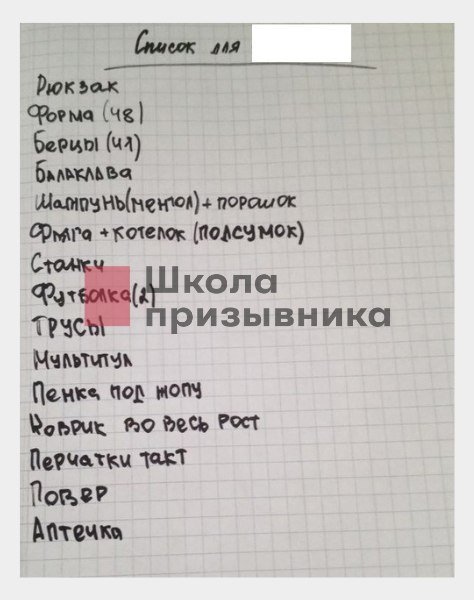 Список для
Рюкзак
Форма (48)
Берцы (41)
Балаклава
Шампунь(ментол) + порошок
Фляга + котелок (подсумок)
Станки
Футболка(2)
Трусы
Мультитул
Пенка под жопу
Коврик во весь рост
Перчатки такт
Повер
Аптечка
Школа
призывника